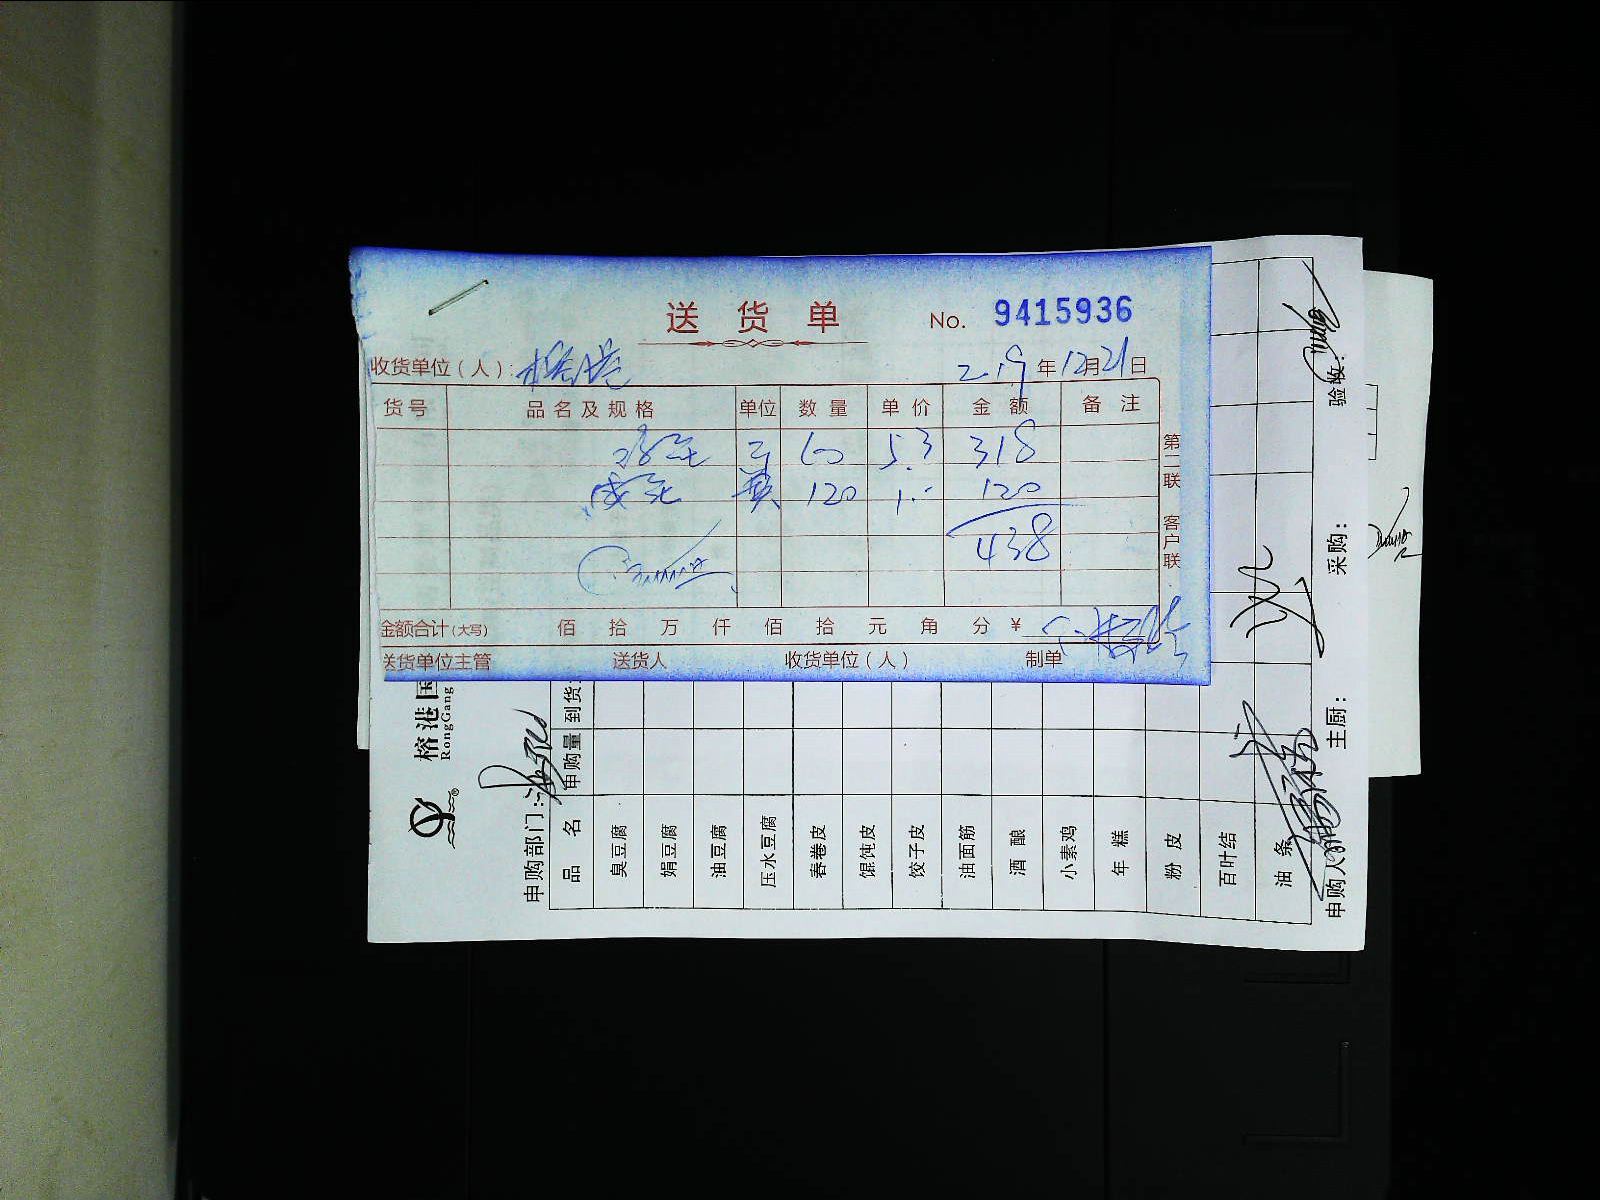 送货单 No. 9415936
收货单位（人）: 榕港 2019年12月21日
货号 品名及规格 单位 数量 单价 金额 备注
60 5.3 318
120 1.- 120
438
第二联 客户联
金额合计(大写) 佰 拾 万 仟 佰 拾 元 角 分 ¥
送货单位主管 送货人 收货单位（人） 制单
榕港国
RongGang
申购部门:
品名 申购量 到货
臭豆腐
娟豆腐
油豆腐
压水豆腐
春卷皮
馄饨皮
饺子皮
油面筋
酒酿
小素鸡
年糕
粉皮
百叶结
油条
申购人 主厨: 采购: 验收: